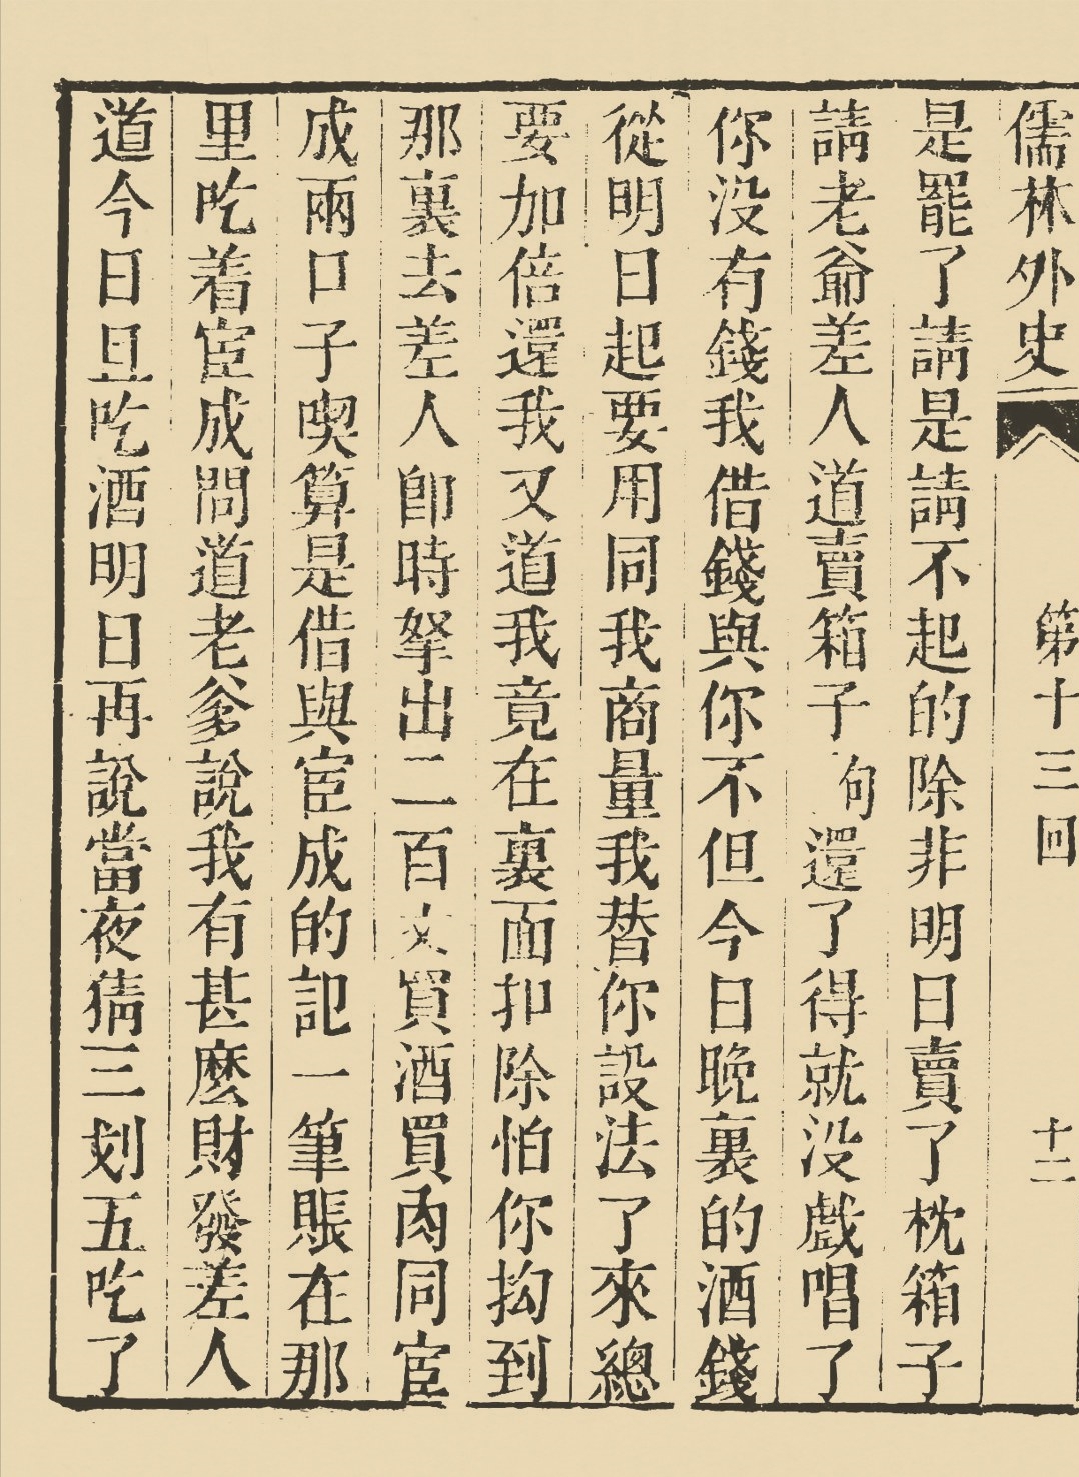 儒林外史
第十三回
十二
是罷了請是請不起的除非明日賣了枕箱子
請老爺差人道賣箱子句還了得就没戲唱了
你没有錢我借錢與你不但今日晚裏的酒錢
從明日起要用同我商量我替你設法了來總
要加倍還我又道我竟在裏面扣除怕你抅到
那裏去差人卽時拏出二百文買酒買肉同宦
成兩口子喫算是借與宦成的記一筆賬在那
里吃着宦成問道老爹說我有甚麽財發差人
道今日且吃酒明日再說當夜猜三划五吃了